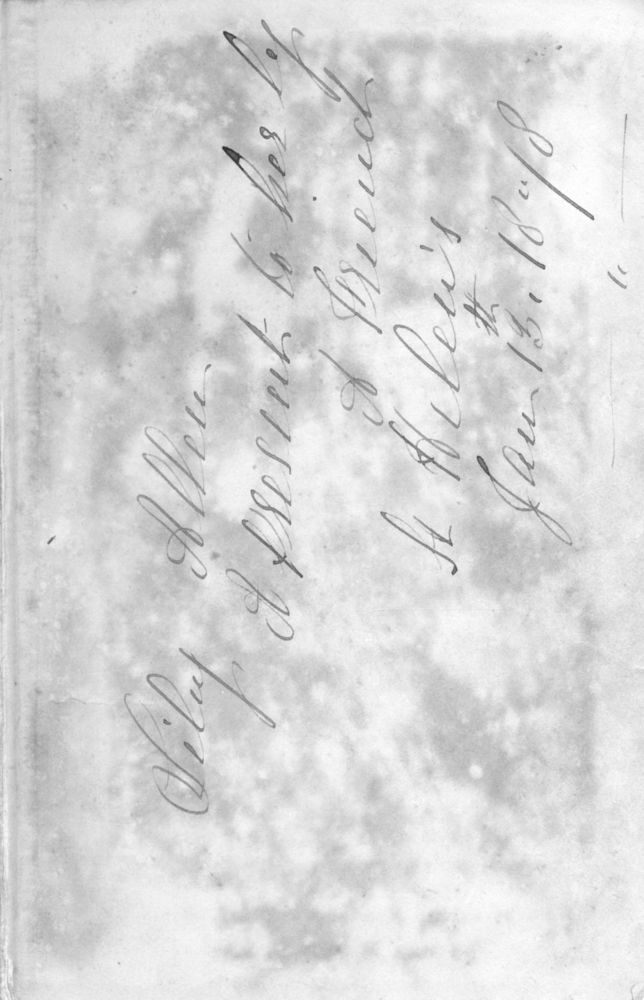 Lily Allen
A present to her by
A Friend
St Helen's
Jan 13th 1878